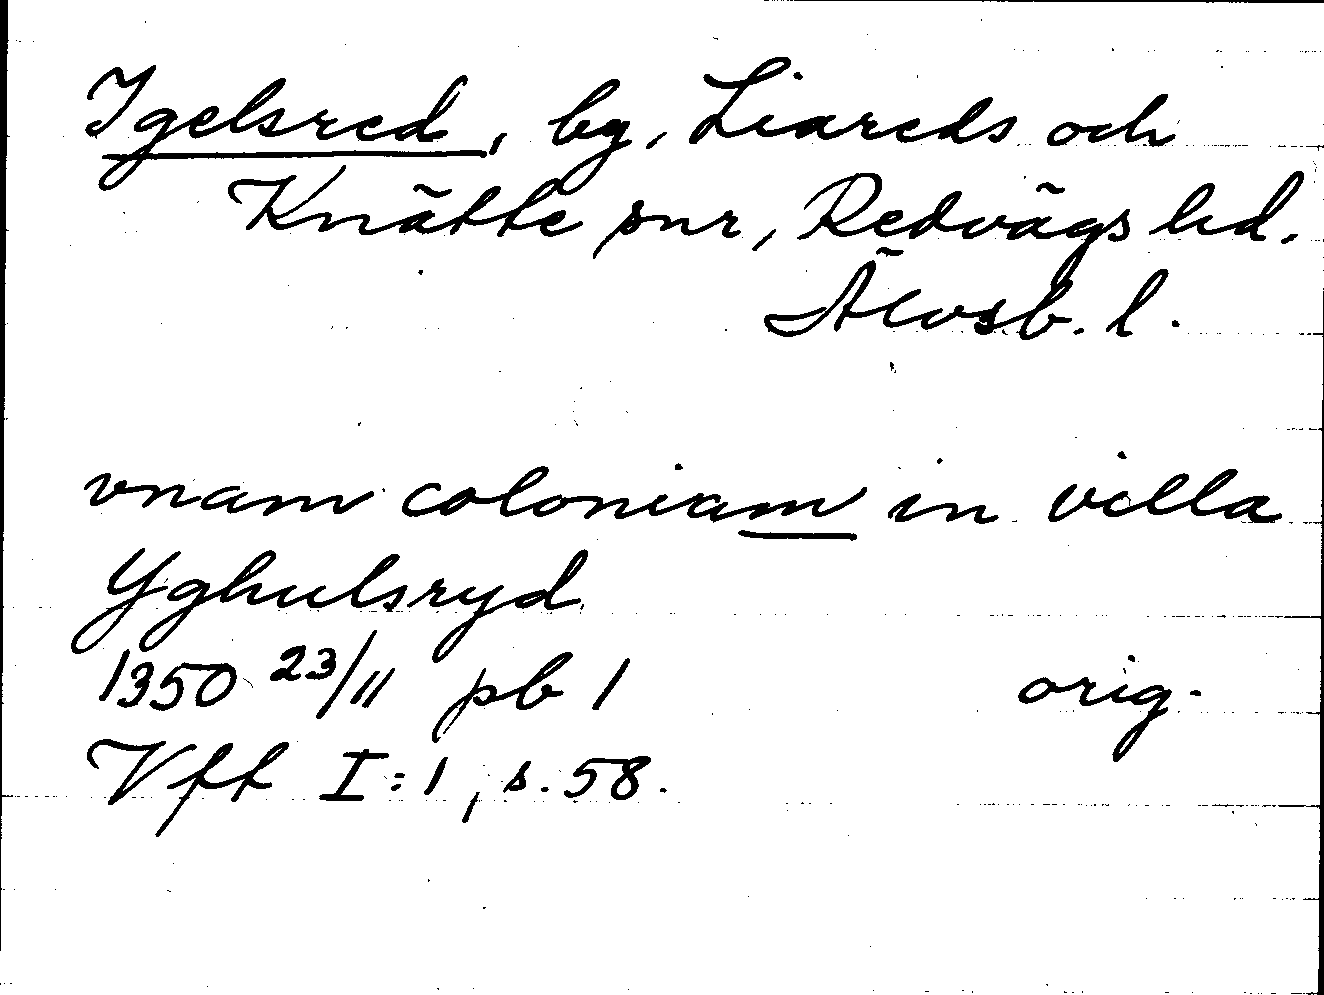 Igelsred, bg, Liareds och
Knätte snr, Redvägs hd.
Älvsb. l.
vnam coloniam in villa
Yghulsryd
1350 23/11 pb 1 orig.
Vff I:1, s. 58.